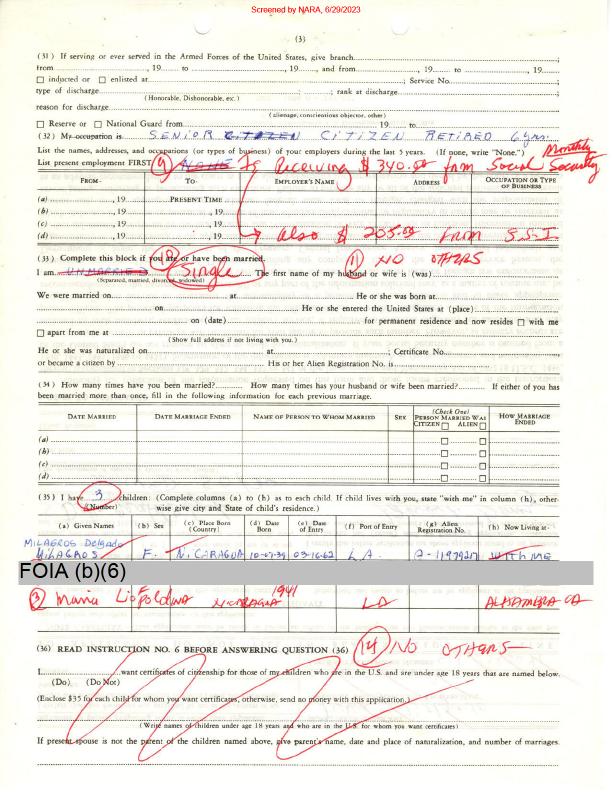 Screened by NARA, 6/29/2023
(3)
(31) If serving or ever served in the Armed Forces of the United States, give branch
from , 19 to , 19 , and from , 19 to , 19
☐ inducted or ☐ enlisted at ; Service No.
type of discharge ; ; rank at discharge ;
(Honorable, Dishonorable, etc.)
reason for discharge
(alienage, conscientious objector, other)
☐ Reserve or ☐ National Guard from , 19 to , 19
(32) My occupation is SENIOR CITIZEN CITIZEN RETIRED 6 yrs.
List the names, addresses, and occupations (or types of business) of your employers during the last 5 years. (If none, write "None.") Monthly
List present employment FIRST. (9) NONE Is Receiving $ 340.00 from Social Security
FROM- TO- EMPLOYER'S NAME ADDRESS OCCUPATION OR TYPE OF BUSINESS
(a) , 19 PRESENT TIME
(b) , 19 , 19
(c) , 19 , 19
(d) , 19 , 19 also $ 205.00 FROM S.S.I.
(33) Complete this block if you are or have been married. (11) NO OTHERS
I am UNMARRIED Single The first name of my husband or wife is (was)
(Separated, married, divorced, widowed)
We were married on at He or she was born at
on He or she entered the United States at (place)
on (date) for permanent residence and now resides ☐ with me
☐ apart from me at
(Show full address if not living with you.)
He or she was naturalized on at ; Certificate No.
or became a citizen by His or her Alien Registration No. is
(34) How many times have you been married? How many times has your husband or wife been married? If either of you has
been married more than once, fill in the following information for each previous marriage.
DATE MARRIED DATE MARRIAGE ENDED NAME OF PERSON TO WHOM MARRIED SEX (Check One) PERSON MARRIED WAS CITIZEN ☐ ALIEN ☐ HOW MARRIAGE ENDED
(a) ☐ ☐
(b) ☐ ☐
(c) ☐ ☐
(d) ☐ ☐
(35) I have 3 children: (Complete columns (a) to (h) as to each child. If child lives with you, state "with me" in column (h), other-
(Number) wise give city and State of child's residence.)
(a) Given Names (b) Sex (c) Place Born (Country) (d) Date Born (e) Date of Entry (f) Port of Entry (g) Alien Registration No. (h) Now Living at-
MILAGROS Delgado
MILAGROS F. NICARAGUA 03-16-62 L A. WITH ME
FOIA (b)(6)
(3) Maria NICARAGUA 1941 LA ALHAMBRA CA
(36) READ INSTRUCTION NO. 6 BEFORE ANSWERING QUESTION (36) (14) NO OTHERS
I want certificates of citizenship for those of my children who are in the U.S. and are under age 18 years that are named below.
(Do) (Do Not)
(Enclose $35 for each child for whom you want certificates, otherwise, send no money with this application.)
(Write names of children under age 18 years and who are in the U.S. for whom you want certificates)
If present spouse is not the parent of the children named above, give parent's name, date and place of naturalization, and number of marriages.